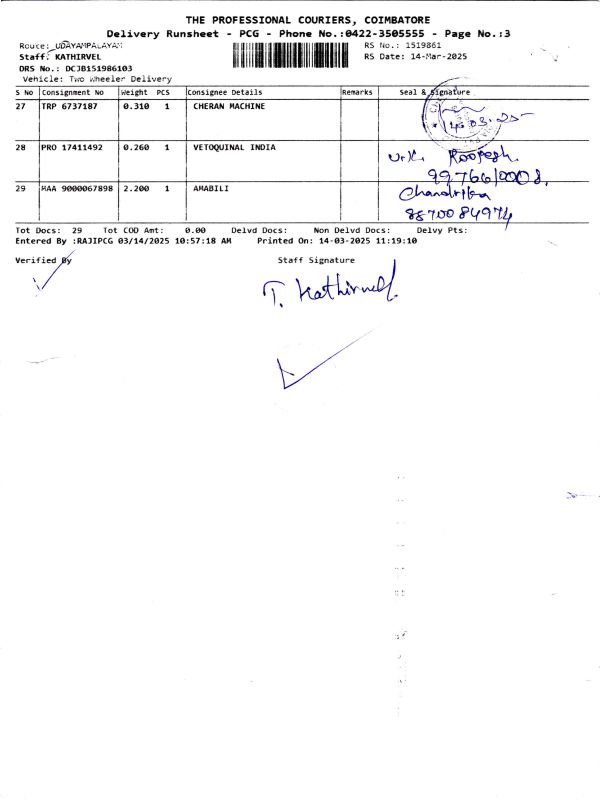 THE PROFESSIONAL COURIERS, COIMBATORE
Delivery Runsheet - PCG - Phone No.:0422-3505555 - Page No.:3
Route: UDAYAMPALAYAM RS No.: 1519861
Staff: KATHIRVEL RS Date: 14-Mar-2025
DRS No.: DCJB151986103
Vehicle: Two Wheeler Delivery
S No Consignment No Weight PCS Consignee Details Remarks Seal & Signature
27 TRP 6737187 0.310 1 CHERAN MACHINE
14.03.25
28 PRO 17411492 0.260 1 VETOQUINAL INDIA
Roopesh.
29 MAA 9000067898 2.200 1 AMABILI
Chandrika
8870084974
Tot Docs: 29 Tot COD Amt: 0.00 Delvd Docs: Non Delvd Docs: Delvy Pts:
Entered By :RAJIPCG 03/14/2025 10:57:18 AM Printed On: 14-03-2025 11:19:10
Verified By Staff Signature
T. Kathirvel